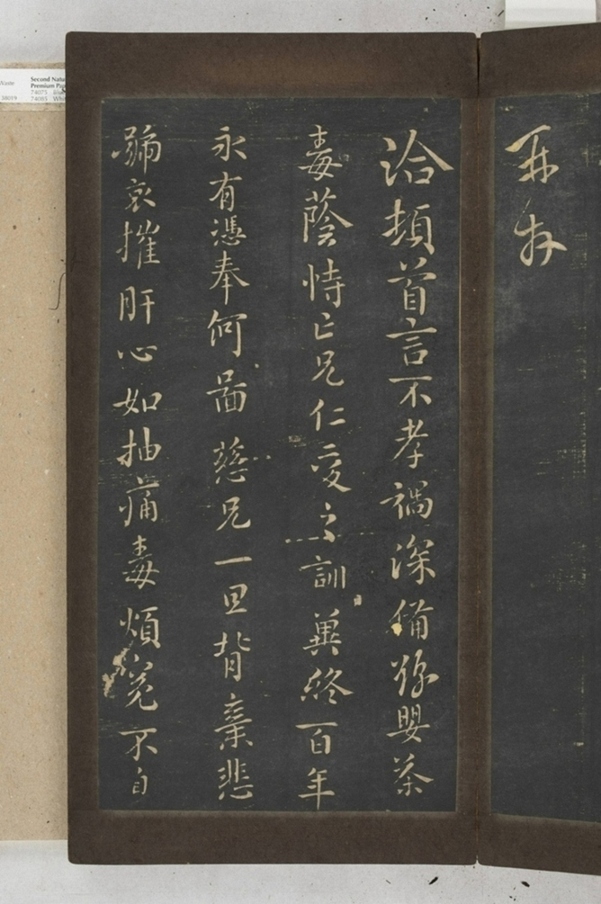 再拜
洽頓首言不孝禍深備豫嬰荼
毒蔭恃亡兄仁愛之訓冀終百年
永有憑奉何啚慈兄一旦背棄悲
號哀摧肝心如抽痛毒煩冤不自
Second Natu
Premium Pap
74075
74085 Whi
38019